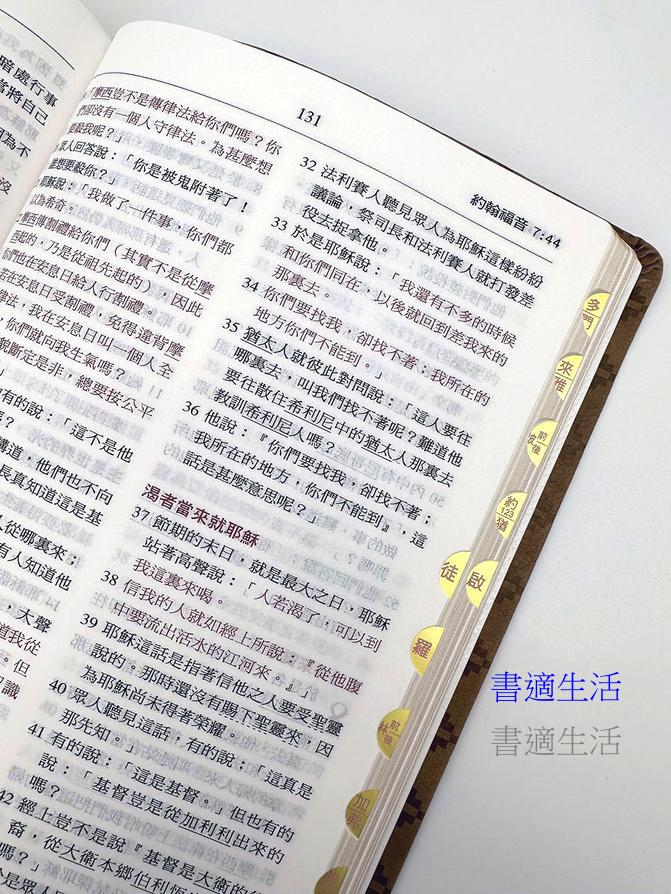 暗處行事
當將自己
131
約翰福音 7:44
「摩西豈不是傳律法給你們嗎？你
們卻沒有一個人守律法。為甚麼想
要殺我呢？」
眾人回答說：「你是被鬼附著了！
誰想要殺你？」
耶穌說：「我做了一件事，你們都
以為希奇。
摩西傳割禮給你們（其實不是從摩
西起的，乃是從祖先起的），因此
你們也在安息日給人行割禮。
若在安息日受割禮，免得違背摩
律法，我在安息日叫一個人全
，你們就向我生氣嗎？
斷定是非，總要按公平
」
有的說：「這不是他
嗎？
講道，他們也不向
長真知道這是基
人從哪裏來；
有人知道他
，大聲
道我從
。但
識
32 法利賽人聽見眾人為耶穌這樣紛紛
議論，祭司長和法利賽人就打發差
役去捉拿他。
33 於是耶穌說：「我還有不多的時候
和你們同在，以後就回到差我來的
那裏去。
34 你們要找我，卻找不著；我所在的
地方你們不能到。」
35 猶太人就彼此對問說：「這人要往
哪裏去，叫我們找不著呢？難道他
要往散住希利尼中的猶太人那裏去
教訓希利尼人嗎？
36 他說：『你們要找我，卻找不著；
我所在的地方，你們不能到』，這
話是甚麼意思呢？」
渴者當來就耶穌
37 節期的末日，就是最大之日，耶穌
站著高聲說：「人若渴了，可以到
我這裏來喝。
38 信我的人就如經上所說：『從他腹
中要流出活水的江河來。』」
39 耶穌這話是指著信他之人要受聖靈
說的。那時還沒有賜下聖靈來，因
為耶穌尚未得著榮耀。
40 眾人聽見這話，有的說：「這真是
那先知。」
41 有的說：「這是基督。」但也有的
說：「基督豈是從加利利出來的
嗎？
42 經上豈不是說『基督是大衛的後
裔，從大衛本鄉伯利恆
嗎？」
多
門
來
雅
前
彼後
約
123
猶
徒
啟
羅
前
林後
加
弗
書適生活
書適生活